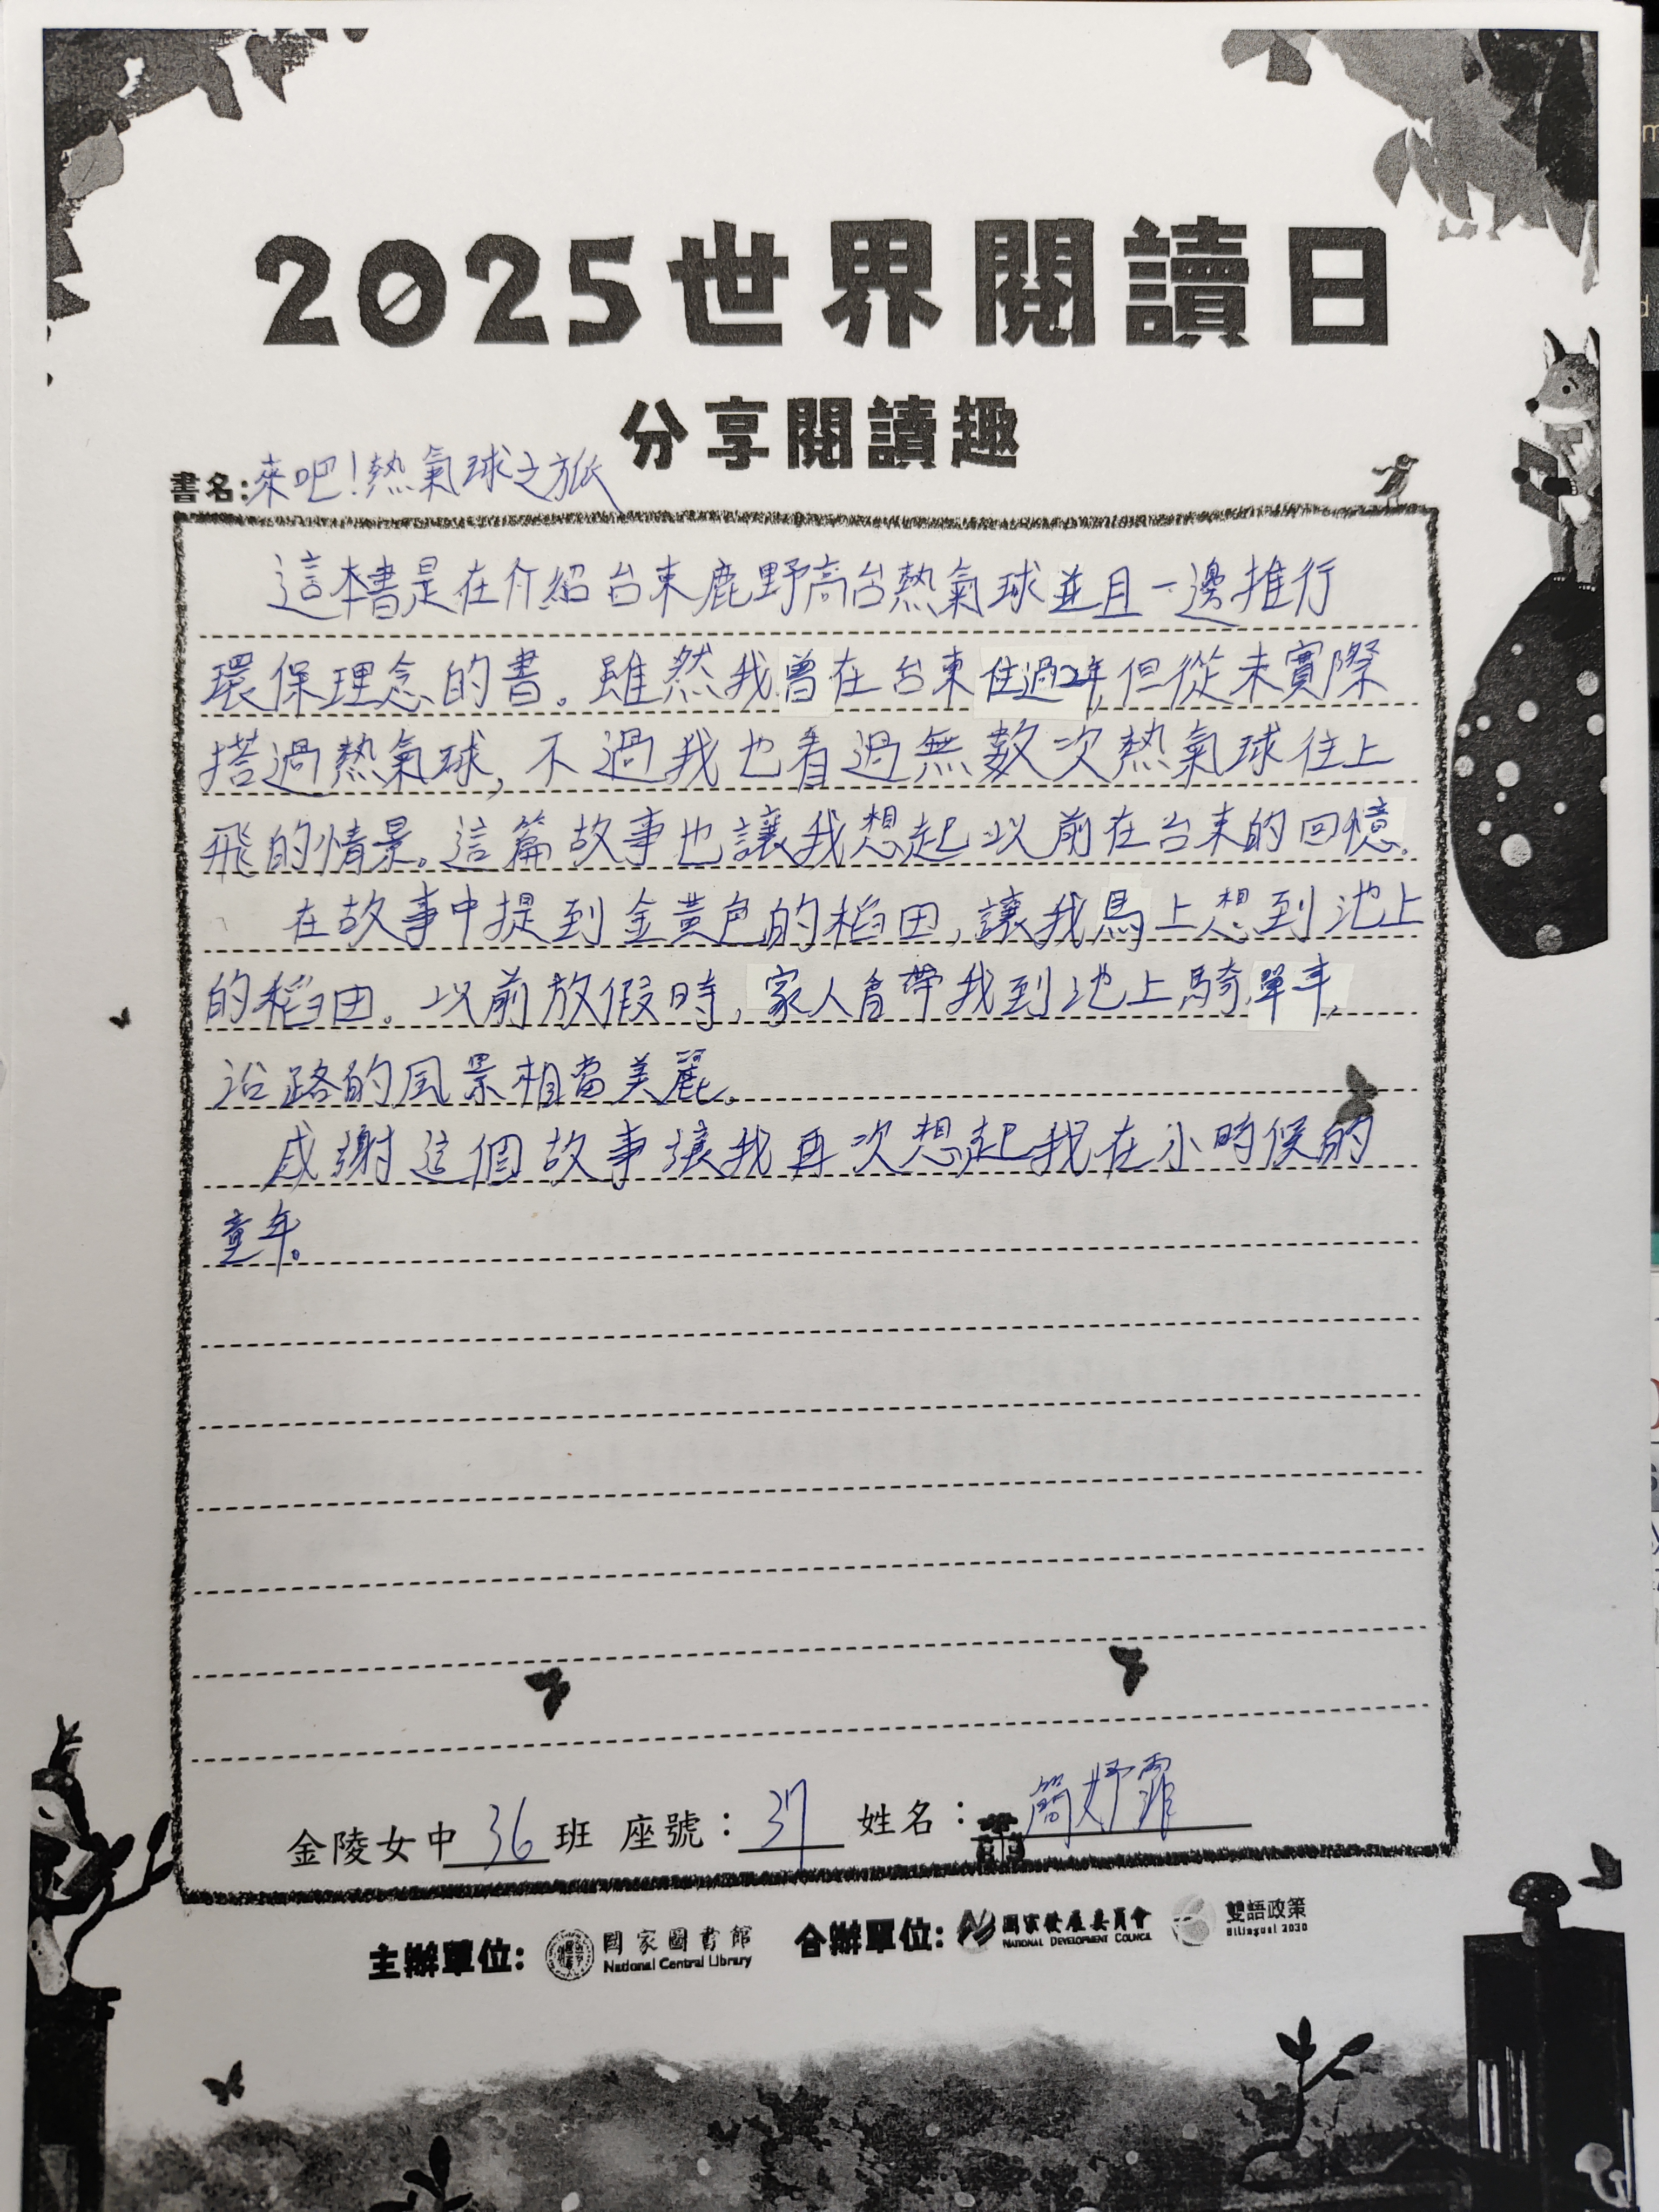 2025世界閱讀日
分享閱讀趣
書名:來吧!熱氣球之旅
這本書是在介紹台東鹿野高台熱氣球並且一邊推行
環保理念的書。雖然我曾在台東住過2年,但從未實際
搭過熱氣球,不過我也看過無數次熱氣球往上
飛的情景。這篇故事也讓我想起以前在台東的回憶。
在故事中提到金黃色的稻田,讓我馬上想到池上
的稻田。以前放假時,家人會帶我到池上騎單車,
沿路的風景相當美麗。
感謝這個故事讓我再次想起我在小時候的
童年。
金陵女中36班 座號:37 姓名:簡妤霏
主辦單位: 國家圖書館 National Central Library 合辦單位: 國家發展委員會 NATIONAL DEVELOPMENT COUNCIL 雙語政策 Bilingual 2030